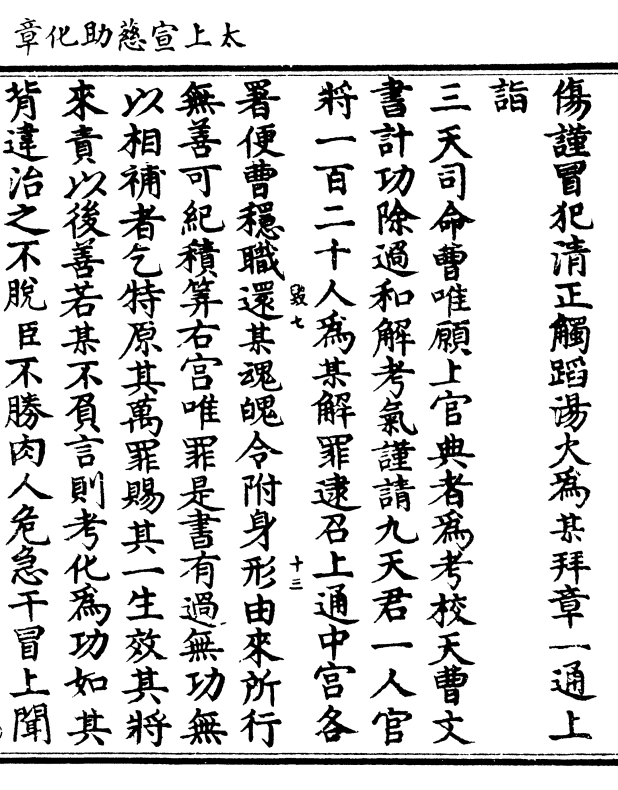 太上宣慈助化章
傷謹冒犯清正觸蹈湯火爲某拜章一通上
詣
三天司命曹唯願上官典者爲考校天曹文
書計功除過和解考氣謹請九天君一人官
將一百二十人爲某解罪逮召上通中宮各
毀七
十三
署便曹穩職還某魂魄令附身形由來所行
無善可紀積筭右宮唯罪是書有過無功無
以相補者乞特原其萬罪賜其一生效其將
來責以後善若某不負言則考化爲功如其
背違治之不脫臣不勝肉人危急干冒上聞